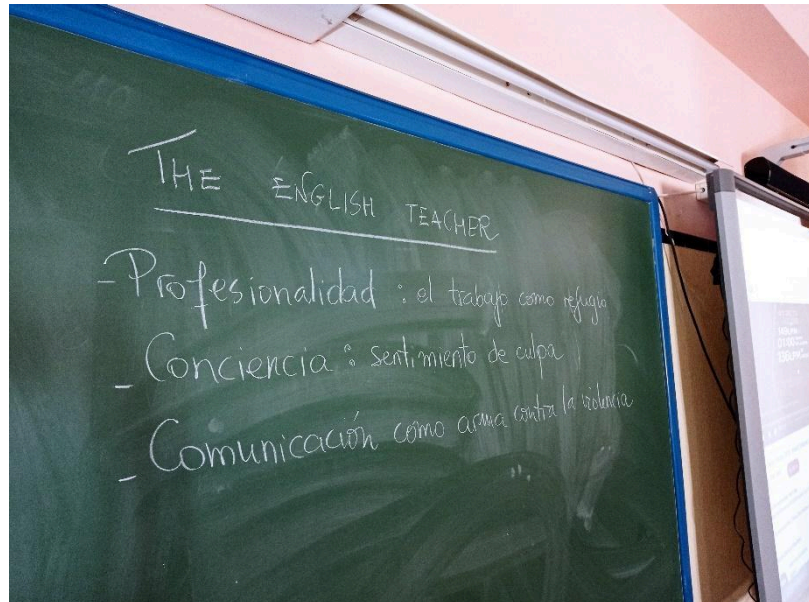 THE ENGLISH TEACHER
- Profesionalidad : el trabajo como refugio
- Conciencia : sentimiento de culpa
- Comunicación como arma contra la violencia